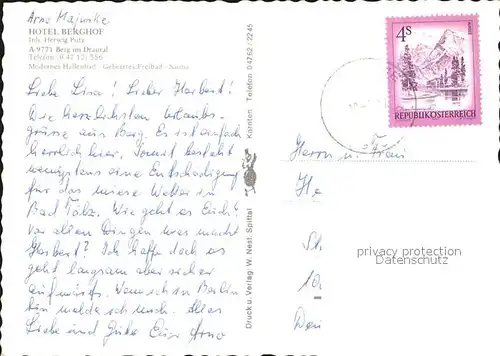 Arno Majunke
HOTEL BERGHOF
Inh. Herwig Putz
A-9771 Berg im Drautal
Telefon (0 47 12) 556
Modernes Hallenbad - Geheiztes Freibad - Sauna
Liebe Lisa! Lieber Herbert!
Die herzlichsten Urlaubs-
grüsse aus Berg. Es ist einfach
herrlich hier. Somit besteht
wenigstens eine Entschädigung
für das miese Wetter in
Bad Tölz. Wie geht es Euch?
Vor allen Dingen was macht
Herbert? Ich hoffe doch es
geht langsam aber sicher
aufwärts. Wenn ich in Berlin
bin melde ich mich. Alles
Liebe und Gute Euer Arno
Druck u. Verlag: W. Nest, Spittal
Kärnten, Telefon 04762/2245
4S
REPUBLIK ÖSTERREICH
Herrn u. Frau
He
10
privacy protection
Datenschutz